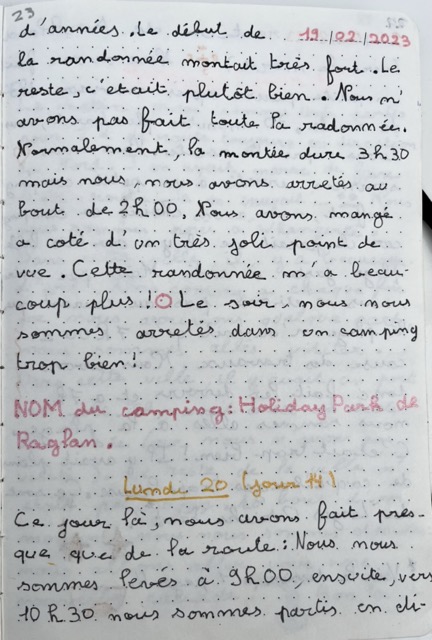 23
d'années. Le début de 19/02/2023
la randonnée montait très fort. Le
reste, c'était plutôt bien. Nous n'
avons pas fait toute la radonnée.
Normalement, la montée dure 3h30
mais nous, nous avons arretés au
bout de 2h00, Nous avons mangé
a coté d'un très joli point de
vue. Cette randonnée m'a beau-
coup plus! Le soir, nous nous
sommes arretés dans un camping
trop bien!
NOM du camping: Holiday Park de
Raglan.
Lundi 20 (jour 14)
Ce jour là, nous avons fait pres-
que que de la route: Nous nous
sommes levés à 9h00, ensuite, vers
10h30 nous sommes partis en di-